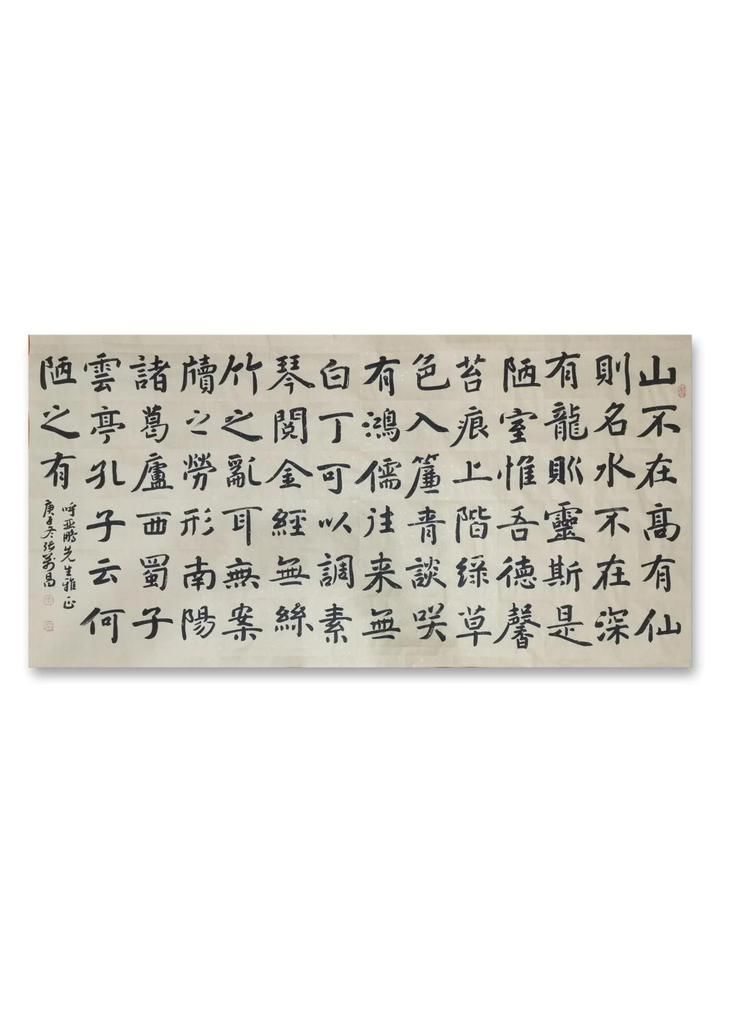 山不在高有仙
則名水不在深
有龍則靈斯是
陋室惟吾德馨
苔痕上階綠草
色入簾青談咲
有鴻儒往来無
白丁可以調素
琴閱金經無絲
竹之亂耳無案
牘之勞形南陽
諸葛廬西蜀子
雲亭孔子云何
陋之有
呼亚鵬先生雅正
庚子冬张萬昌